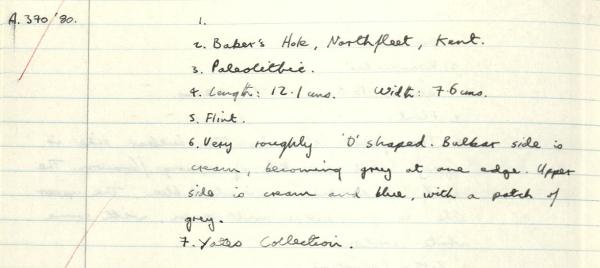 A.370/'80.
1.
2. Baker's Hole, Northfleet, Kent.
3. Paleolithic.
4. Length: 12.1 cms. Width: 7.6 cms.
5. Flint.
6. Very roughly 'D' shaped. Bulbar side is
cream, becoming grey at one edge. Upper
side is cream and blue, with a patch of
grey.
7. Yates Collection.